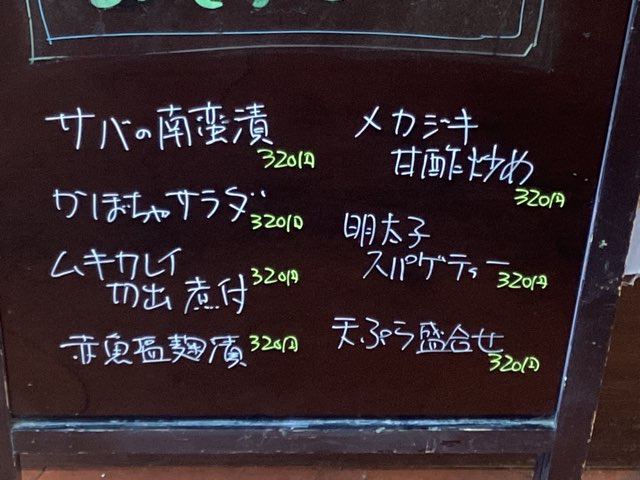 サバの南蛮漬
320円
かぼちゃサラダ
320円
ムキカレイ
切出 煮付
320円
赤魚塩麹漬
320円
メカジキ
甘酢炒め
320円
明太子
スパゲティー
320円
天ぷら盛合せ
320円